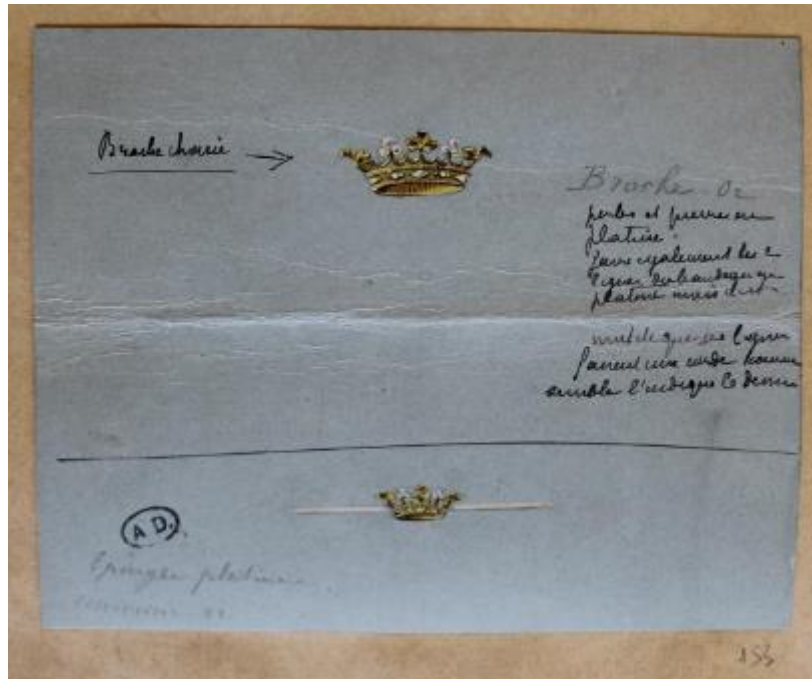 Broche choisie
Broche or
perles et pierres en
platine.
également les 2
lignes du bandeau en
platine mais
que ces lignes
fassent une corde comme
semble l'indiquer le dessin
A D.
Epingle platine
couronne or
155